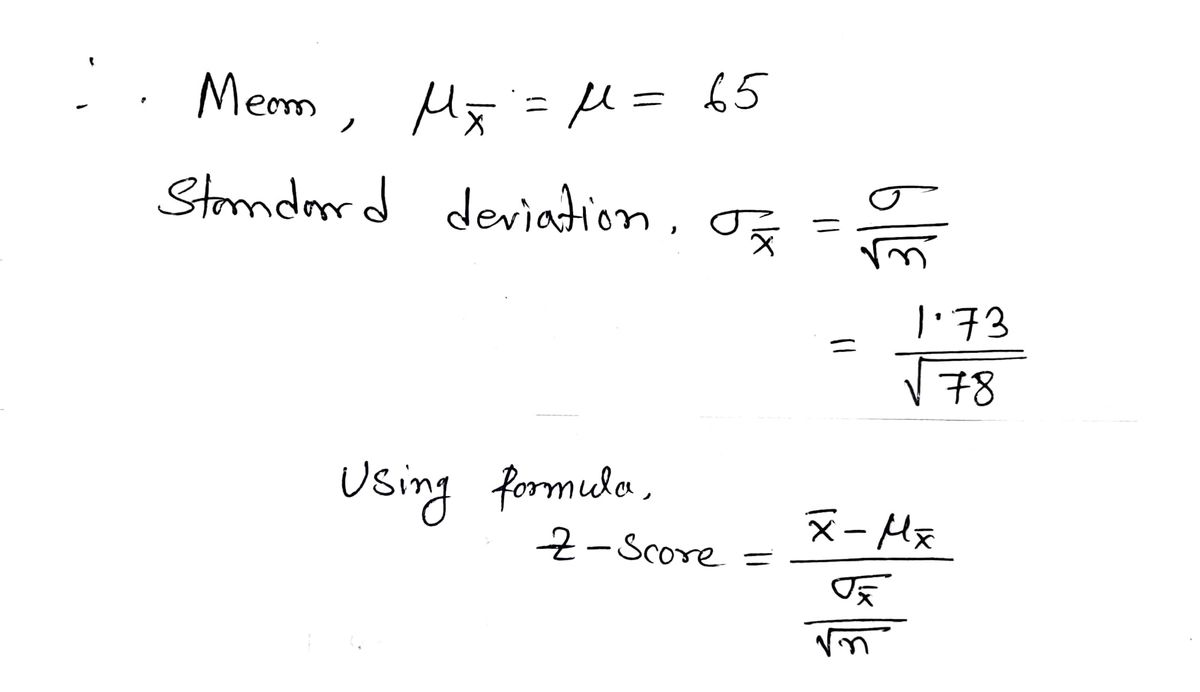 ∴ Mean, μ_x̄ = μ = 65
Standard deviation, σ_x̄ = σ/√n
= 1.73/√78
Using formula,
Z-Score = (x̄ - μ_x̄)/(σ_x̄/√n)